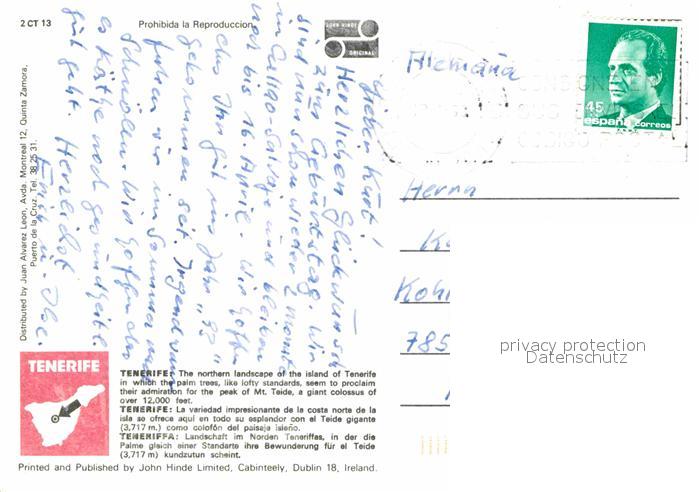 2 CT 13
Prohibida la Reproduccion
JOHN HINDE
ORIGINAL
Alemania
45
españa correos
Lieber Kurt!
Herzlichen Glückwunsch
zum Geburtstag. Wir
sind nun schon wieder 2 Monate
in Callao-Salvaje und bleiben
noch bis 16. April. Wir hoffen
das Ihr gut ins Jahr "92"
gekommen seit. Irgendwann
fahren wir im Sommer nach
Wir hoffen das
es Käthe und gesundheitl.
gut geht. Herzlichst
Erich u. Ilse.
Herrn
K
Kohl
785
privacy protection
Datenschutz
Distributed by Juan Alvarez Leon, Avda. Montreal 12, Quinta Zamora,
Puerto de la Cruz. Tel. 38 25 31.
TENERIFE
TENERIFE: The northern landscape of the island of Tenerife
in which the palm trees, like lofty standards, seem to proclaim
their admiration for the peak of Mt. Teide, a giant colossus of
over 12,000 feet.
TENERIFE: La variedad impresionante de la costa norte de la
isla se ofrece aquí en todo su esplendor con el Teide gigante
(3,717 m.) como colofón del paisaje isleño.
TENERIFFA: Landschaft im Norden Teneriffas, in der die
Palme gleich einer Standarte ihre Bewunderung für el Teide
(3,717 m) kundzutun scheint.
Printed and Published by John Hinde Limited, Cabinteely, Dublin 18, Ireland.